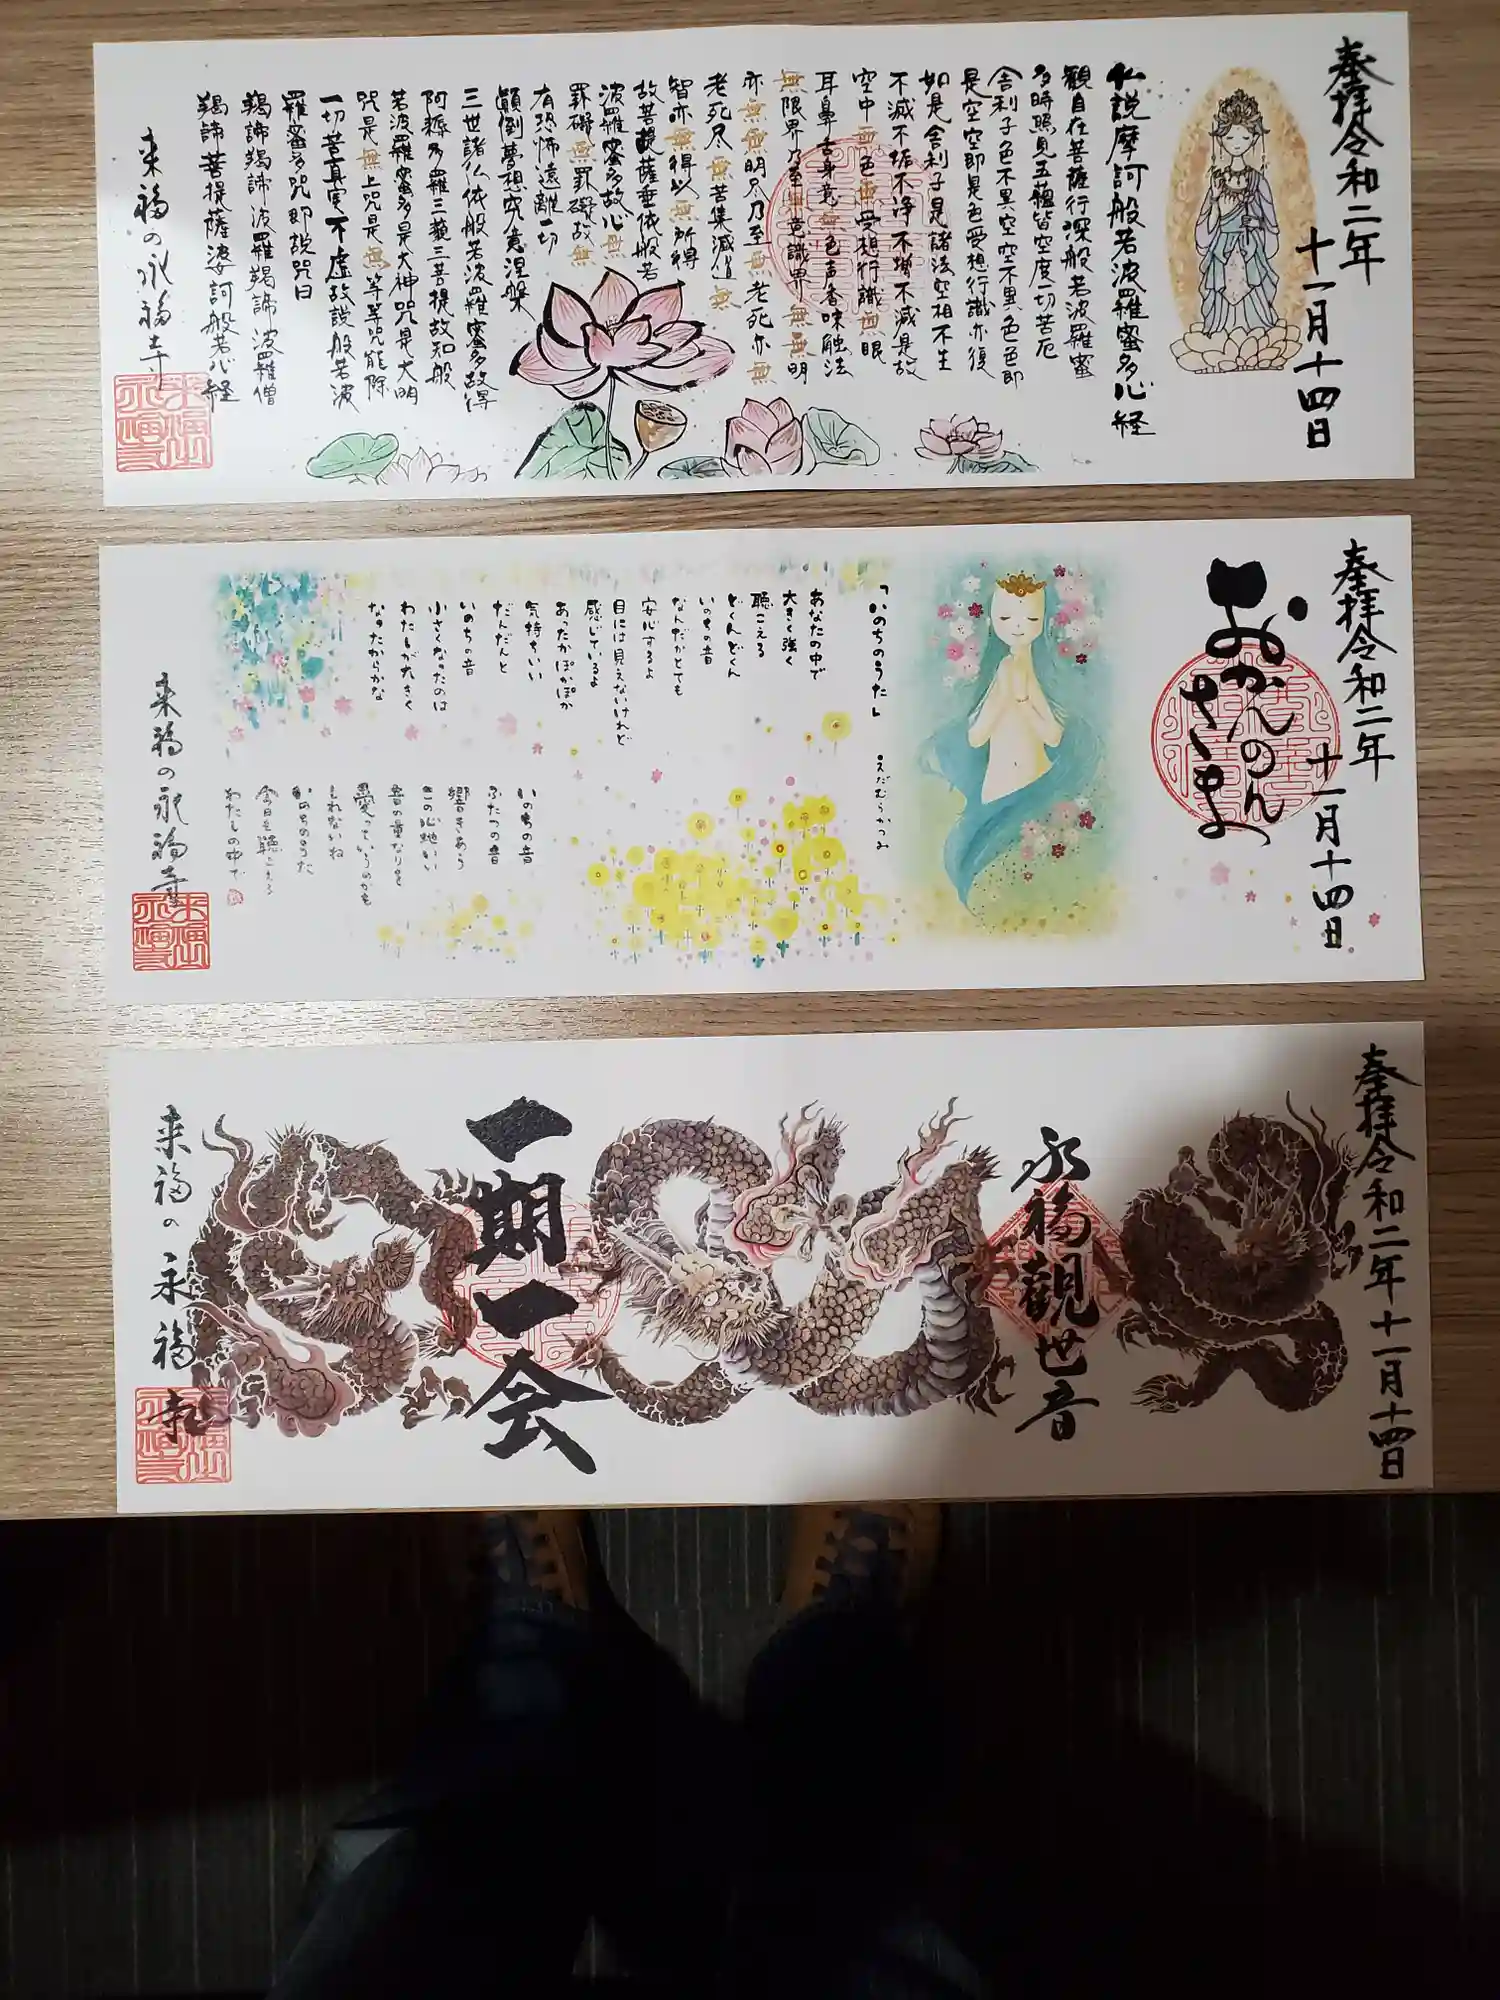 奉拝令和二年
十一月十四日
仏説摩訶般若波羅蜜多心経
観自在菩薩行深般若波羅蜜
多時照見五蘊皆空度一切苦厄
舎利子色不異空空不異色色即
是空空即是色受想行識亦復
如是舎利子是諸法空相不生
不滅不垢不浄不増不減是故
空中無色無受想行識無眼
耳鼻舌身意無色声香味触法
無限界乃至無意識界無無明
亦無無明尽乃至無老死亦無
老死尽無苦集滅道無
智亦無得以無所得
故菩提薩埵依般若
波羅蜜多故心無
罣礙無罣礙故無
有恐怖遠離一切
顛倒夢想究竟涅槃
三世諸仏依般若波羅蜜多故得
阿耨多羅三藐三菩提故知般
若波羅蜜多是大神咒是大明
咒是無上咒是無等等咒能除
一切苦真実不虚故説般若波
羅蜜多咒即説咒曰
羯諦羯諦波羅羯諦波羅僧
羯諦菩提薩婆訶般若心経
来福の永福寺
奉拝令和二年
十一月十四日
おかんのんさま
「いのちのうた」 えだむらかつみ
あなたの中で
大きく強く
聴こえる
どくんどくん
いのちの音
なんだかとても
安心するよ
目には見えないけれど
感じているよ
あったかぽかぽか
気持ちいい
だんだんと
いのちの音
小さくなったのは
わたしが大きく
なったからかな
いのちの音
ふたつの音
響きあう
この心地いい
音の重なりを
愛っていうのかも
しれないね
いのちのうた
今日も聴こえる
わたしの中で
来福の永福寺
奉拝令和二年十一月十四日
永福觀世音
一期一会
来福の永福寺